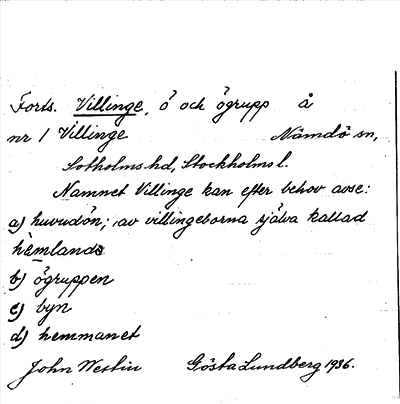 Forts. Villinge, ö och ögrupp å
nr 1 Villinge Nämdö sn,
Sotholms hd, Stockholms l.
Namnet Villinge kan efter behov avse:
a) huvudön; av villingeborna själva kallad
hemlandə
b) ögruppen
c) byn
d) hemmanet
John Westin Gösta Lundberg 1936.